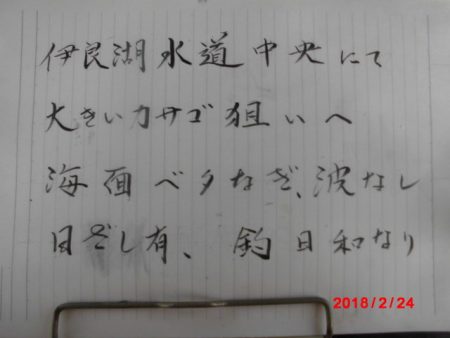 伊良湖水道中央にて
大きいカサゴ狙いへ
海面ベタなぎ、波なし
日ざし有、釣日和なり
2018/2/24